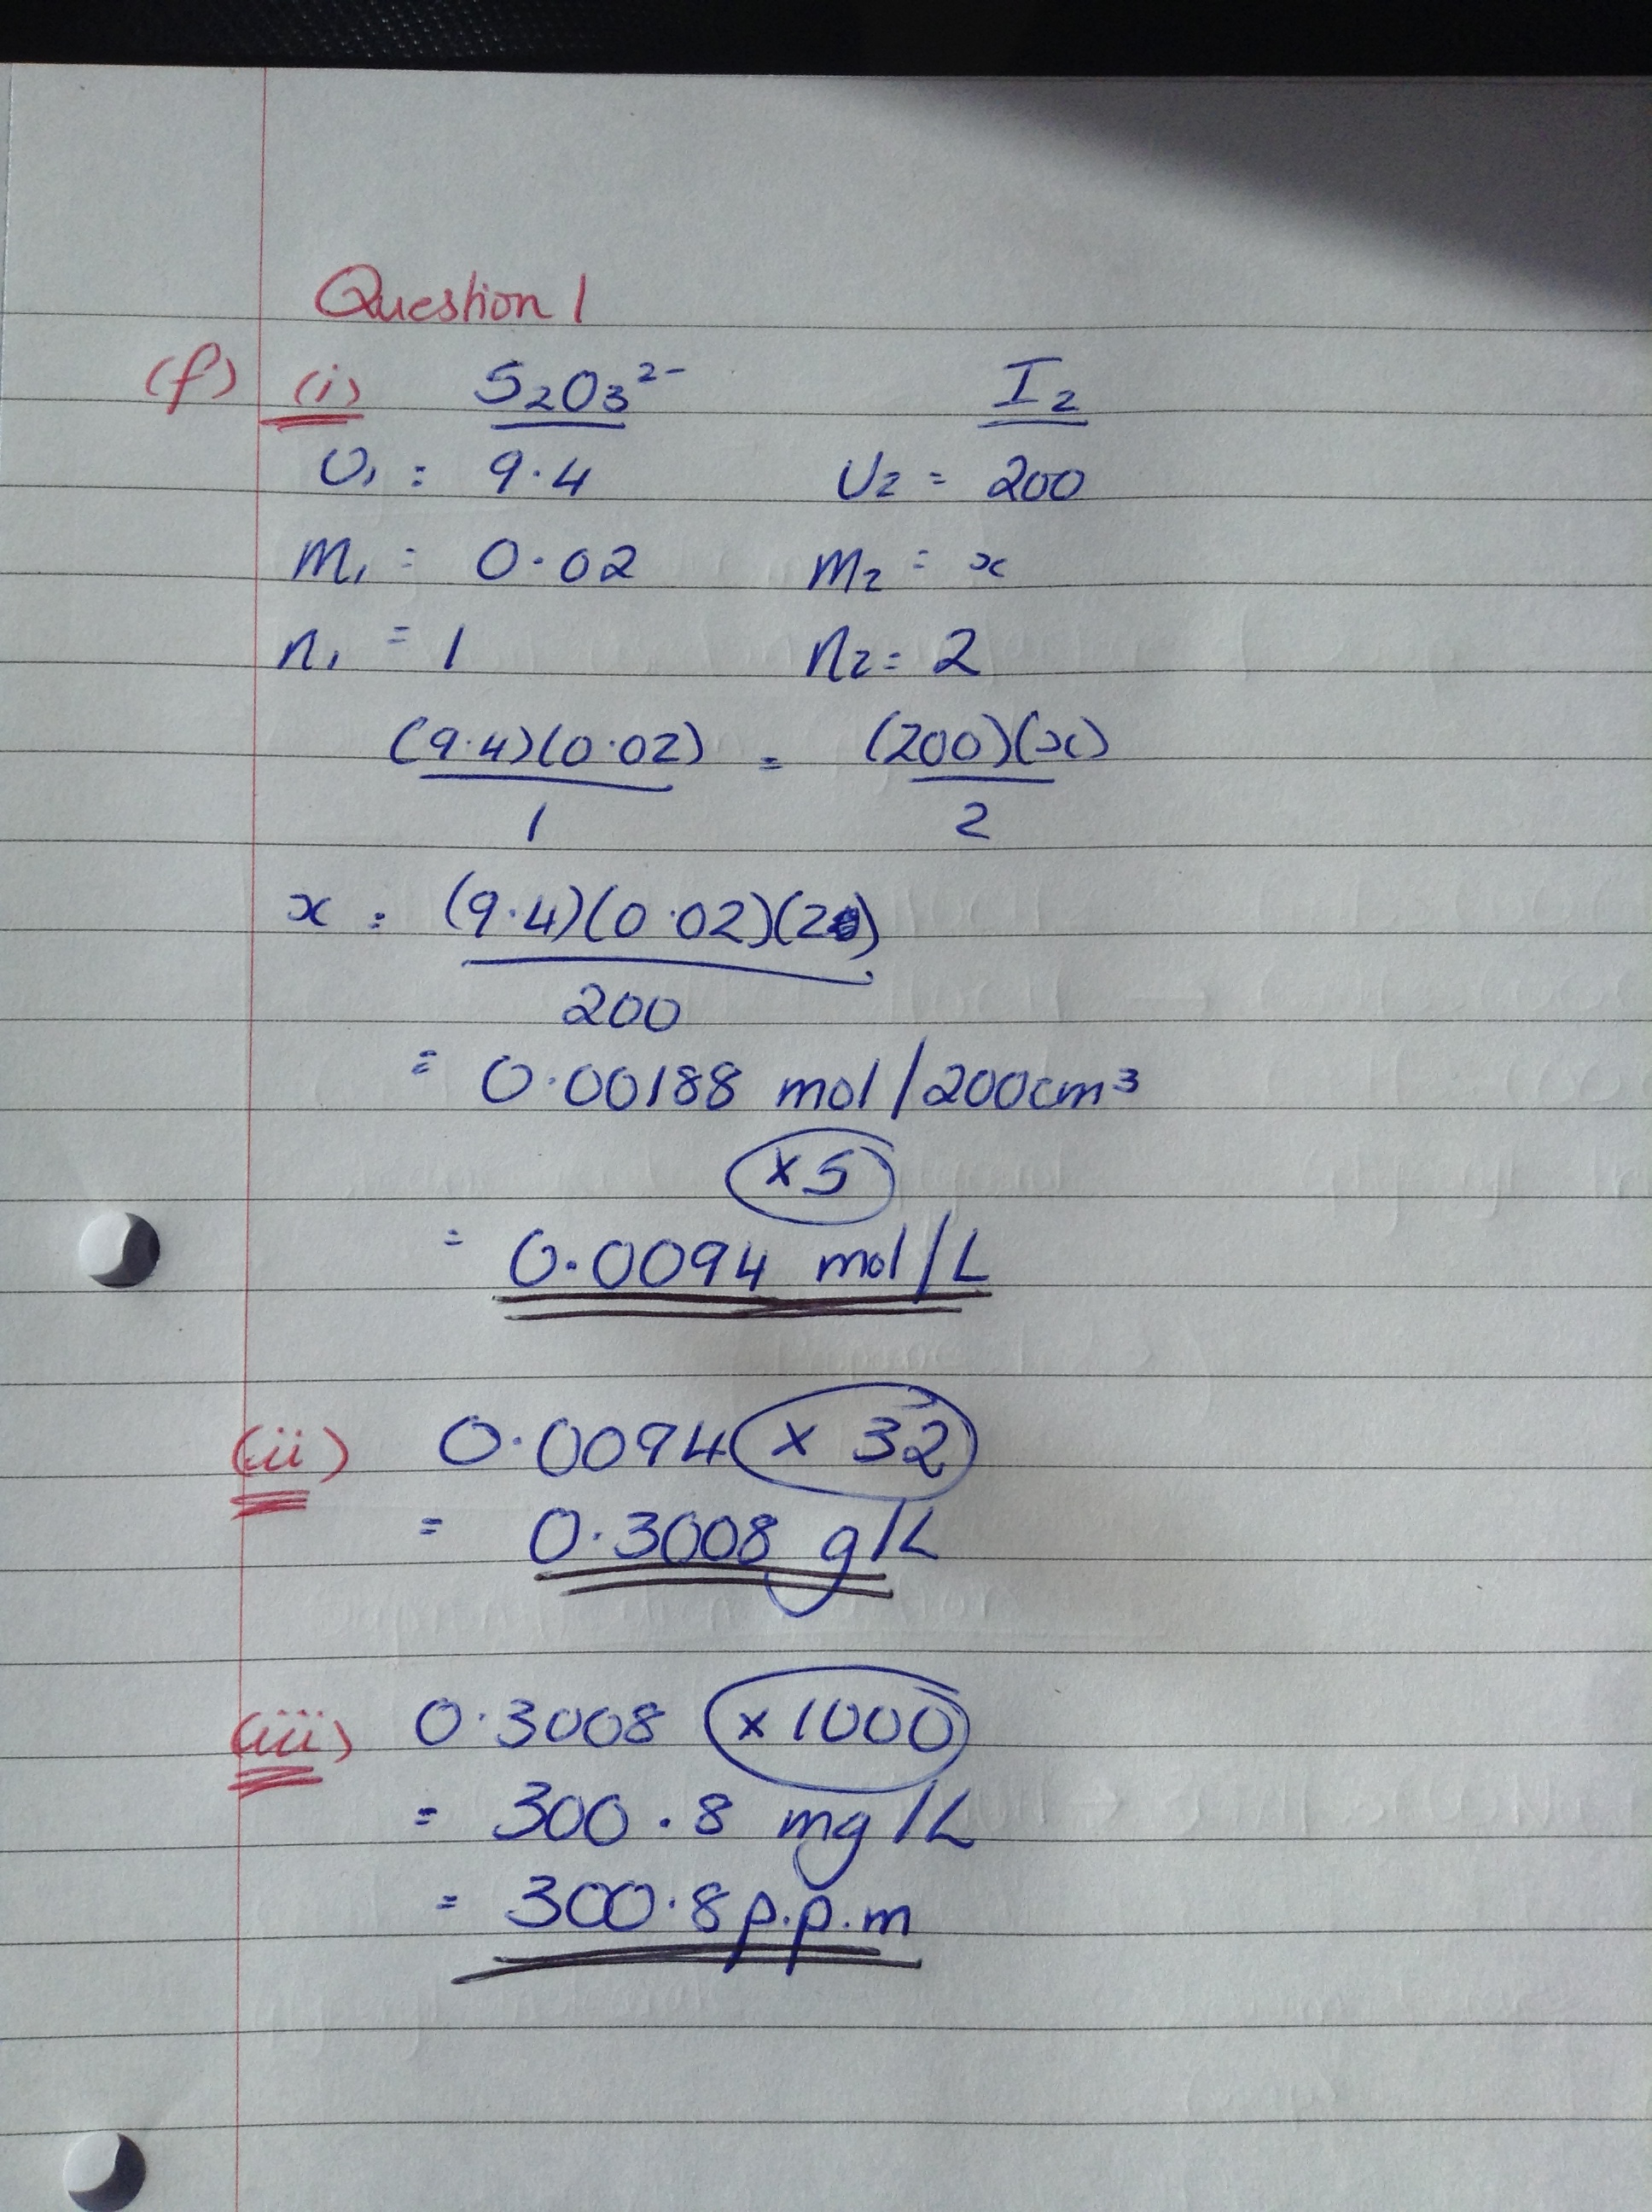 Question 1
(f) (i) S₂O₃²⁻ I₂
V₁ = 9.4 V₂ = 200
M₁ = 0.02 M₂ = x
n₁ = 1 n₂ = 2
(9.4)(0.02) = (200)(x)
1 2
x = (9.4)(0.02)(2)
200
= 0.00188 mol/200cm³
×5
= 0.0094 mol/L
(ii) 0.0094 × 32
= 0.3008 g/L
(iii) 0.3008 ×1000
= 300.8 mg/L
= 300.8 p.p.m